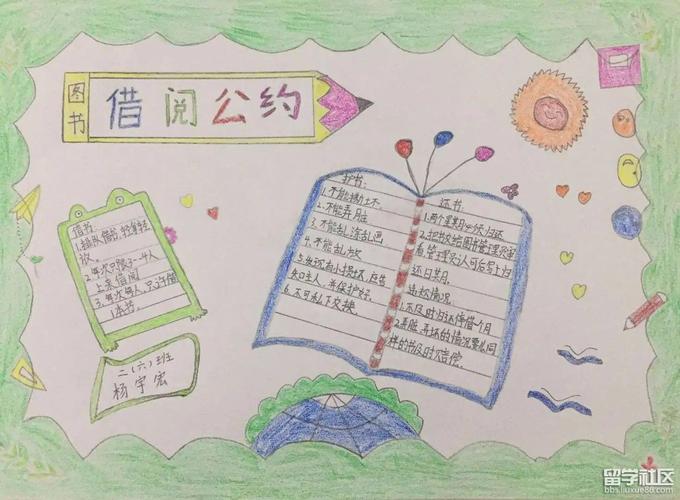 图书
借阅公约
借书:
1.排队借书,轻拿轻
放。
2.每次只限3-4人
上来借阅
3.每次每人只许借
1本书。
二(六)班
杨宇宏
护书:
1.不能撕坏.
2.不能弄脏
3.不能乱涂乱画
4.不能乱放
5.发现有小损坏,应告
知主人,并保护好.
6.不可私下交换.
还书:
1.两个星期必须归还
2.把书交给图书管理员审
看,管理员认可后写上归
还日期.
违规情况
1.不及时归还停借1个月
2.弄脏、弄坏的情况要么同
样的书及时赔偿.
留学社区
bbs.liuxue86.com